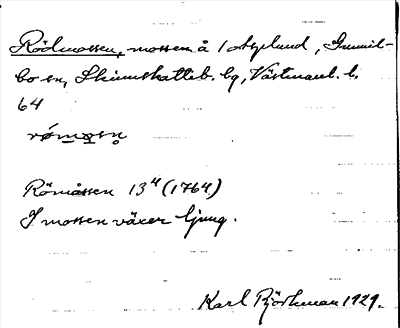 Rödmossen, mossen å 1 Asplund, Gunnil-
bo sn, Skinnskatteb. hg, Västmanl. l.
64
Römåssen 13⁴ (1764)
I mossen växer ljung.
Karl Björkman 1929.